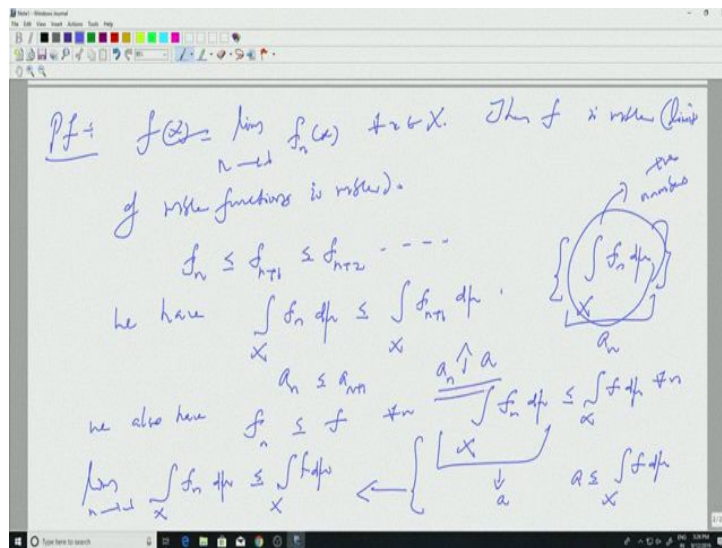 Note1 - Windows Journal
File Edit View Insert Actions Tools Help
Pf:- f(x) = lim_{n→∞} f_n(x) ∀ x ∈ X. Then f is mble (limit
of mble functions is mble).
+ve number
f_n ≤ f_{n+1} ≤ f_{n+2} ----
{ ∫_X f_n dμ }
a_n
we have ∫_X f_n dμ ≤ ∫_X f_{n+1} dμ.
a_n ≤ a_{n+1} a_n ↑ a
we also have f_n ≤ f ∀ n ∫_X f_n dμ ≤ ∫_X f dμ ∀ n
↓ a
a ≤ ∫_X f dμ
lim_{n→∞} ∫_X f_n dμ ≤ ∫_X f dμ ←
Type here to search
ENG